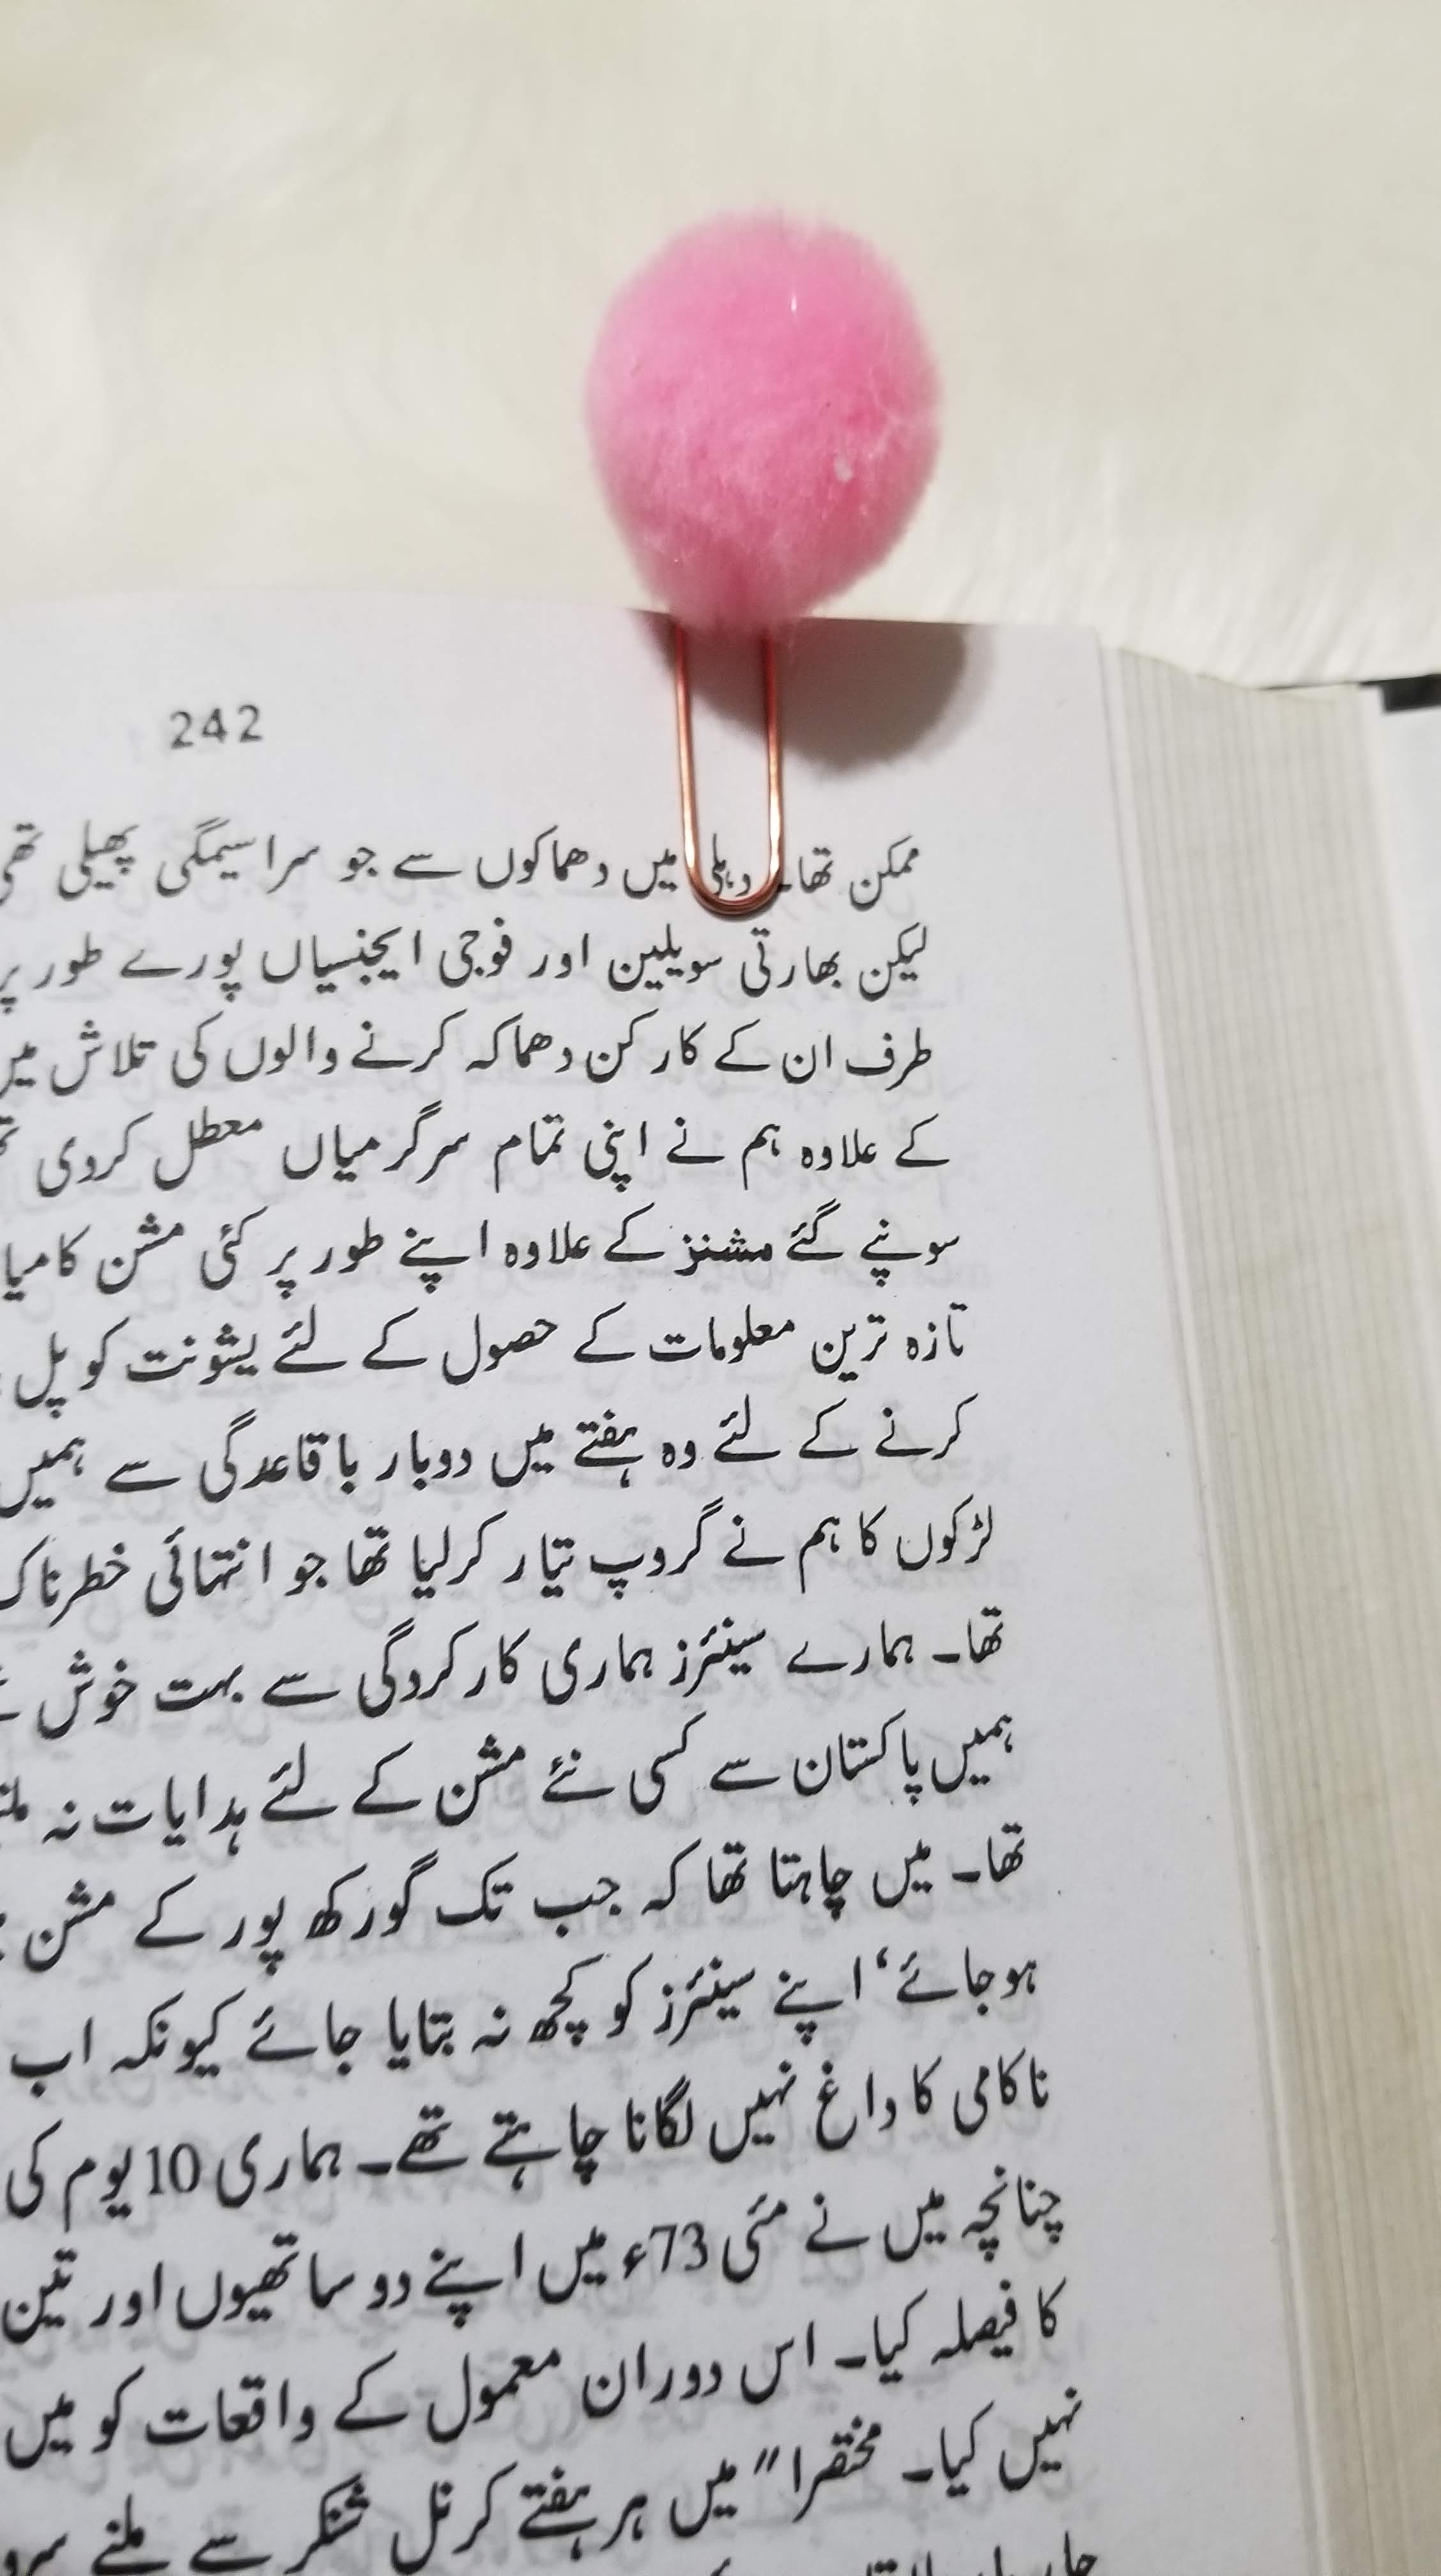 242
ممکن تھا۔ دہلی میں دھماکوں سے جو سراسیمگی پھیلی تھی
لیکن بھارتی سویلین اور فوجی ایجنسیاں پورے طور پر
طرف ان کے کارکن دھماکہ کرنے والوں کی تلاش میں
کے علاوہ ہم نے اپنی تمام سرگرمیاں معطل کردی
سونپے گئے مشنز کے علاوہ اپنے طور پر کئی مشن
تازہ ترین معلومات کے حصول کے لئے یشونت کو پل
کرنے کے لئے وہ ہفتے میں دوبار باقاعدگی سے ہمیں
لڑکوں کا ہم نے گروپ تیار کرلیا تھا جو انتہائی خطرناک
تھا۔ ہمارے سینئرز ہماری کارکردگی سے بہت خوش
ہمیں پاکستان سے کسی نئے مشن کے لئے ہدایات نہ
تھا۔ میں چاہتا تھا کہ جب تک گورکھ پور کے مشن
ہوجائے‘ اپنے سینئرز کو کچھ نہ بتایا جائے کیونکہ اب
ناکامی کا داغ نہیں لگانا چاہتے تھے۔ ہماری 10 یوم کی
چنانچہ میں نے مئی 73ء میں اپنے دو ساتھیوں اور تین
کا فیصلہ کیا۔ اس دوران معمول کے واقعات کو میں
نہیں کیا۔ مختصرا" میں ہر ہفتے کرنل شنکر سے ملنے